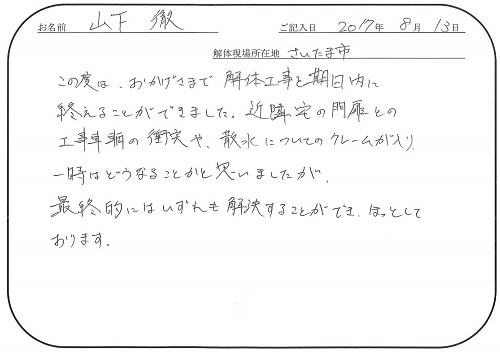 お名前 山下 徹 ご記入日 2017年 8月 13日
解体現場所在地 さいたま市
この度は、おかげさまで 解体工事を期日内に
終えることができました。近隣宅の門扉との
工事車輌の衝突や、散水についてのクレームが入り
一時はどうなることかと思いましたが、
最終的にはいずれも解決することができ、ほっとして
おります。